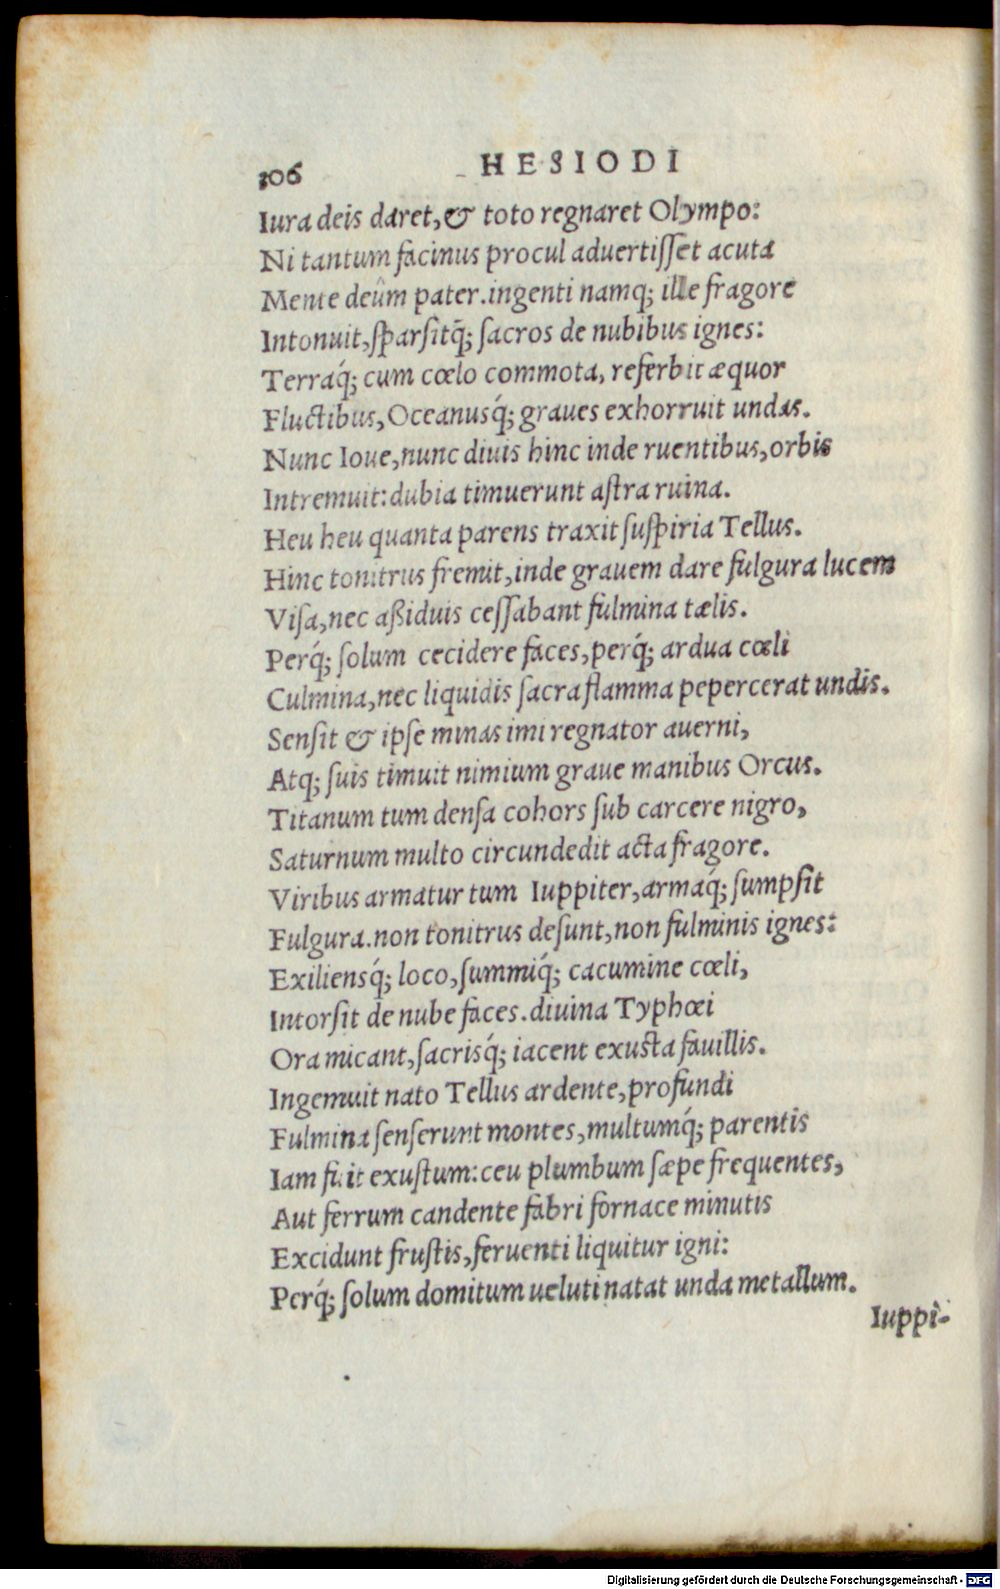 106 HESIODI
Iura deis daret, & toto regnaret Olympo:
Ni tantum facinus procul aduertisset acuta
Mente deûm pater. ingenti namq; ille fragore
Intonuit, sparsitq́; sacros de nubibus ignes:
Terraq́; cum cœlo commota, referbuit æquor
Fluctibus, Oceanusq́; graues exhorruit undas.
Nunc Ioue, nunc diuis hinc inde ruentibus, orbis
Intremuit: dubia timuerunt astra ruina.
Heu heu quanta parens traxit suspiria Tellus.
Hinc tonitrus fremit, inde grauem dare fulgura lucem
Visa, nec aßiduis cessabant fulmina tælis.
Perq́; solum cecidere faces, perq́; ardua cœli
Culmina, nec liquidis sacra flamma pepercerat undis.
Sensit & ipse minas imi regnator auerni,
Atq; suis timuit nimium graue manibus Orcus.
Titanum tum densa cohors sub carcere nigro,
Saturnum multo circundedit acta fragore.
Viribus armatur tum Iuppiter, armaq́; sumpsit
Fulgura. non tonitrus desunt, non fulminis ignes:
Exiliensq́; loco, summiq́; cacumine cœli,
Intorsit de nube faces. diuina Typhœi
Ora micant, sacrisq́; iacent exusta fauillis.
Ingemuit nato Tellus ardente, profundi
Fulmina senserunt montes, multumq́; parentis
Iam fuit exustum: ceu plumbum sæpe frequentes,
Aut ferrum candente fabri fornace minutis
Excidunt frustis, feruenti liquitur igni:
Perq́; solum domitum ueluti natat unda metallum.
Iuppi-
Digitalisierung gefördert durch die Deutsche Forschungsgemeinschaft - DFG